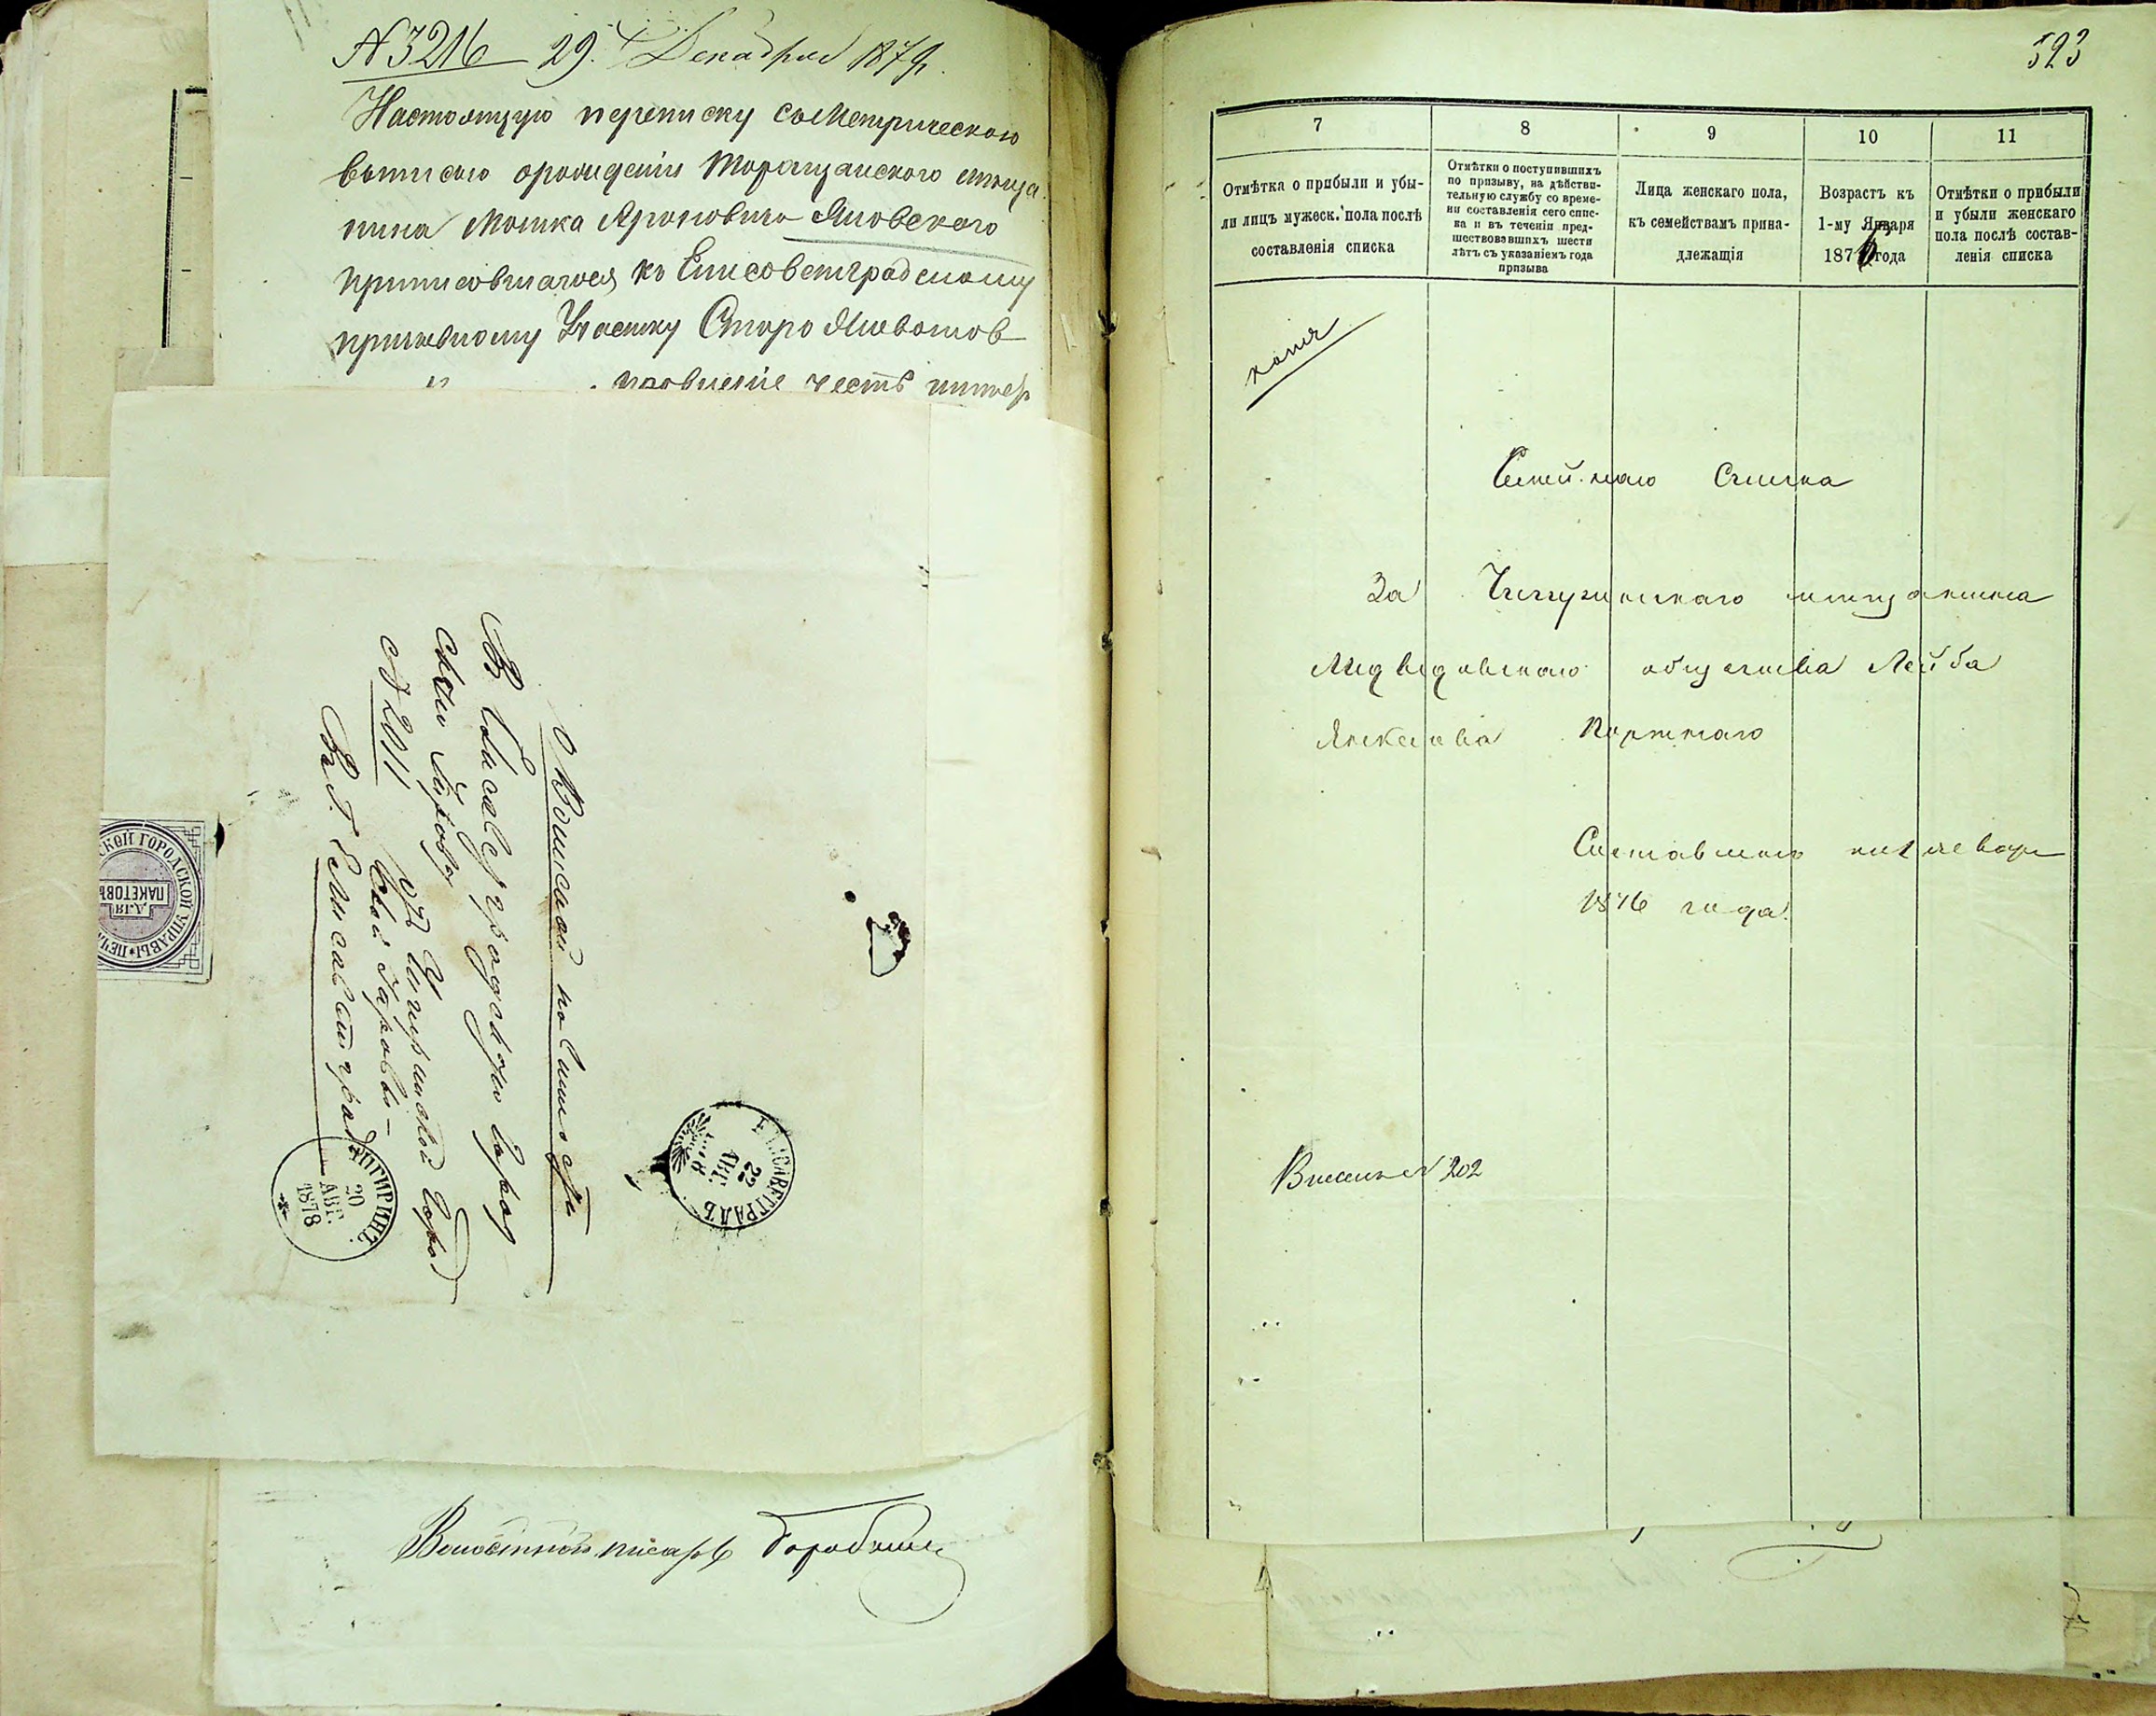 № 3216 29. Декабря 1879г.
Настоящую переписку съ Метрическою
выписью о рождении Таращанского мѣща
нина Мошка Ароновича Яновского
приписовшагося къ Елисоветградскому
призывному Участку Старо
правление честь
О Воинской повинности
В Елисаветградскую Город
скую Управу
№ 2011
Отъ Чигиринской Город
ской Управы
Въ Г. Елисаветградъ
СКОЙ ГОРОДСКОЙ УПРАВЫ * ПЕЧ
ДЛЯ
ПАКЕТОВЪ
ЧИГИРИНЪ
20
АВГ.
1878
ЕЛИСАВЕТГРАДЪ
22
АВГ.
1878
Волостной писарь
323
7 8 9 10 11
Отмѣтка о прибыли и убы-
ли лицъ мужеск. пола послѣ
составленія списка
Отмѣтки о поступившихъ
по призыву, на дѣйстви-
тельную службу со време-
ни составленія сего спис-
ка и въ теченіи пред-
шествовавшихъ шести
лѣтъ съ указаніемъ года
призыва
Лица женскаго пола,
къ семействамъ прина-
длежащія
Возрастъ къ
1-му Января
1876 года
Отмѣтки о прибыли
и убыли женскаго
пола послѣ состав-
ленія списка
копія
Семейнаго Списка
За Чигиринскаго мѣщанина
Медведовскаго общества Лейба
Янкелева Портнаго
Составленъ на 1 январ
1876 года.
202